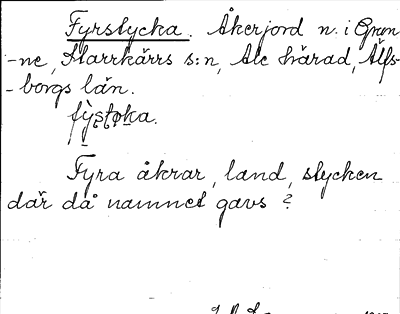 Fyrstycka. Åkerjord n. i Grun-
-ne, Starrkärrs s:n, Ale härad, Älfs-
-borgs län.
Fyra åkrar, land, stycken
där då namnet gavs?